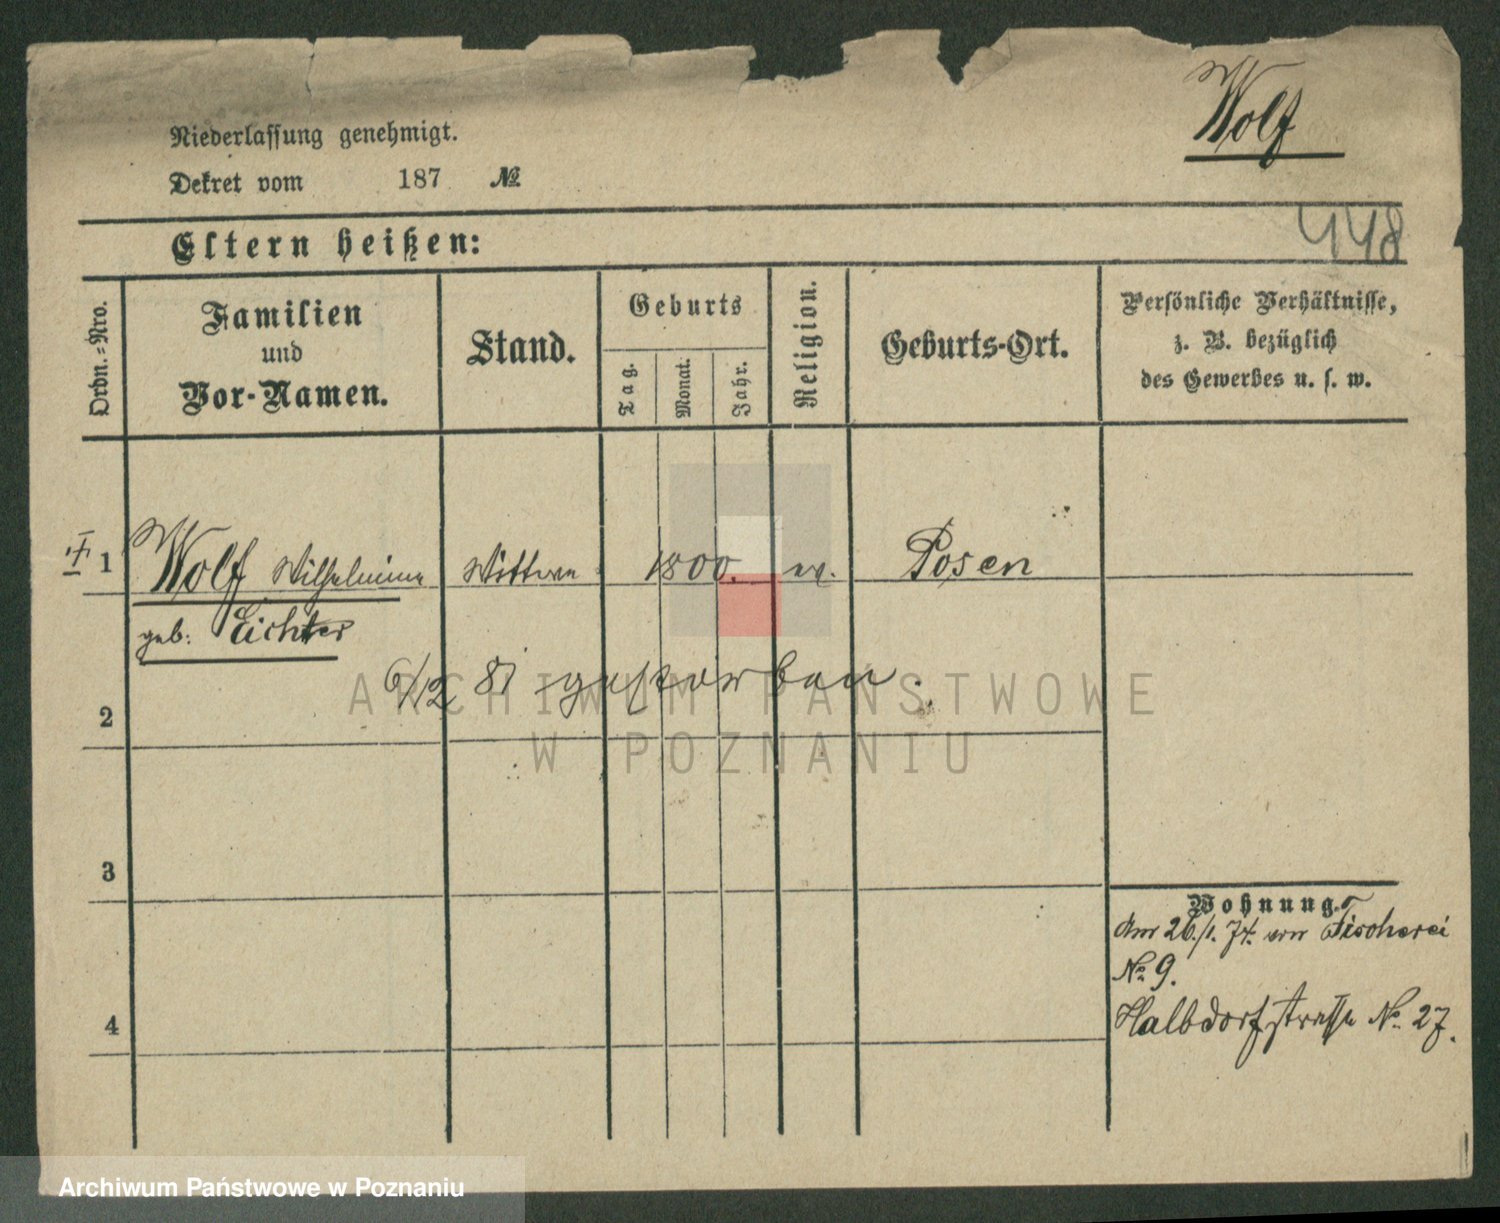 Wolf
Niederlassung genehmigt.
Dekret vom 187 №
448
Eltern heißen:
Ordn.-Nro.
Familien
und
Vor-Namen.
Stand.
Geburts
Tag.
Monat.
Jahr.
Religion.
Geburts-Ort.
Persönliche Verhältnisse,
z. B. bezüglich
des Gewerbes u. s. w.
1 Wolf Wilhelmine Wittwe 1800. ev. Posen
geb: Eichter
6/12 81 gestorben.
2
ARCHIWUM PAŃSTWOWE
W POZNANIU
3
4
Wohnung.
Am 26./1. 74. von Fischerei
No 9.
Halbdorfstrasse No. 27.
Archiwum Państwowe w Poznaniu